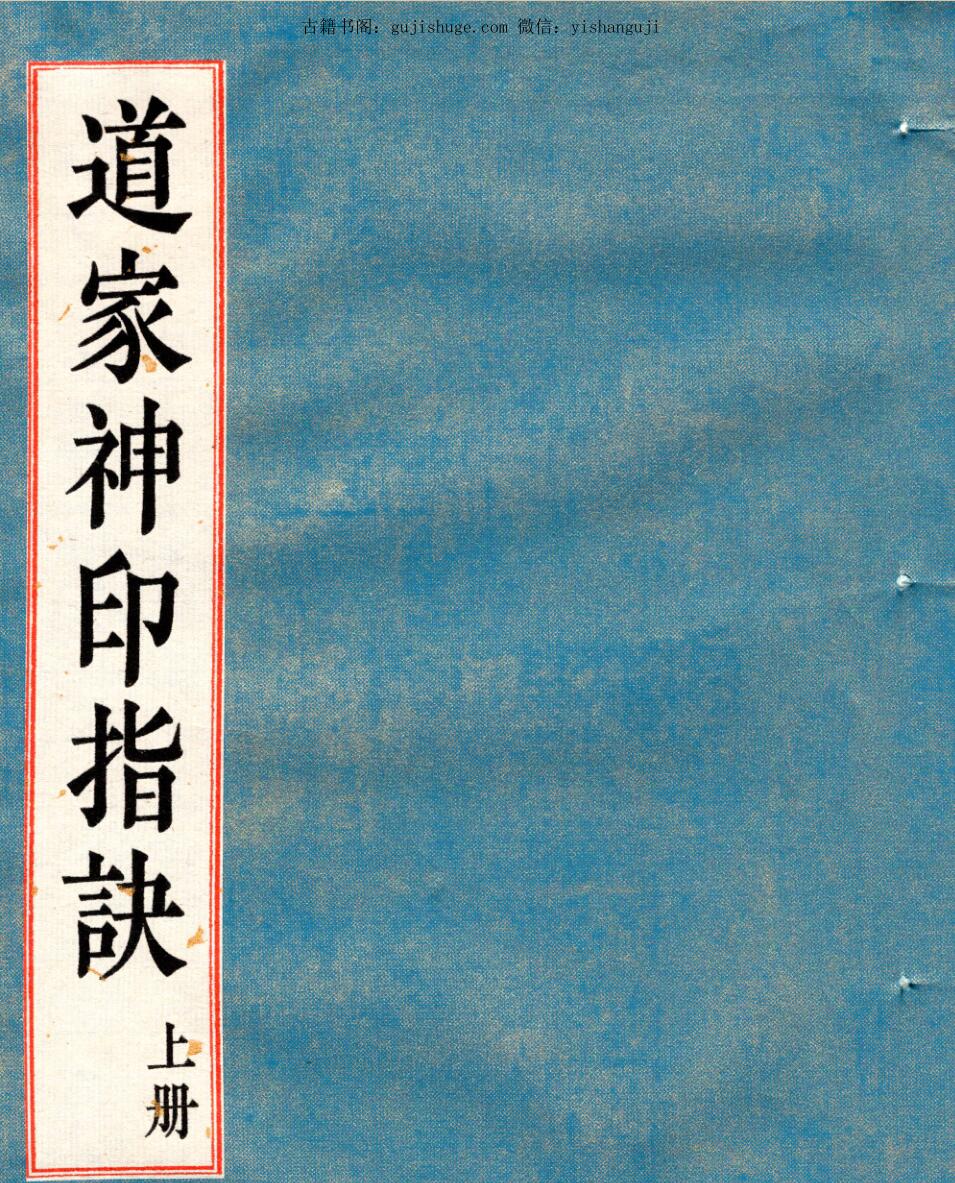 古籍书阁：gujishuge.com 微信：yishanguji
道家神印指訣
上册